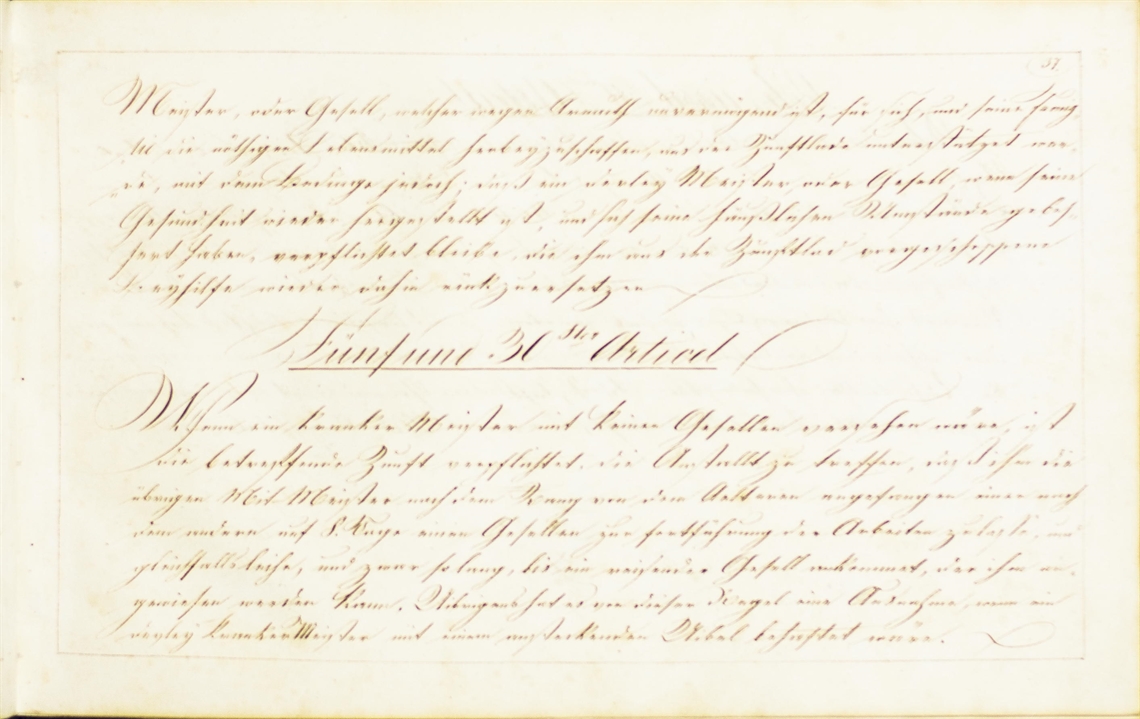 57.
Meister, oder Gesell, welcher wegen Armuth unvermögend ist, für sich, und seine Fami-
lie die nöthigen Lebensmittel herbeyzuschaffen, aus der Zunftlade unterstützet wer-
de, mit dem Bedinge jedoch; daß ein derley Meister oder Gesell, wenn seine
Gesundheit wieder hergestellt ist, und sich seine häußlichen Umstände gebes-
sert haben, verpflichtet bleibe, die ihm aus der Zunftlad vorgeschossene
Beyhilfe wieder dahin rückzuersetzen
Fünfund 30ster Articel
Wenn ein kranker Meister mit keinen Gesellen versehen wäre, ist
die betreffende Zunft verpflichtet, die Anstallt zu treffen, daß ihm die
übrigen Mit-Meister nach dem Rang von dem Aelteren angefangen einer nach
dem andern auf 8. Tage einen Gesellen zur fortführung der Arbeiten zulasse, und
gleichfalls leihe, und zwar so lang, bis ein reisender Gesell ankommet, der ihm an-
gewiesen werden kann. Uibrigens hat es von dieser Regel eine Ausnahme, wenn ein
derley kranker Meister mit einem ansteckenden Uibel behaftet wäre.